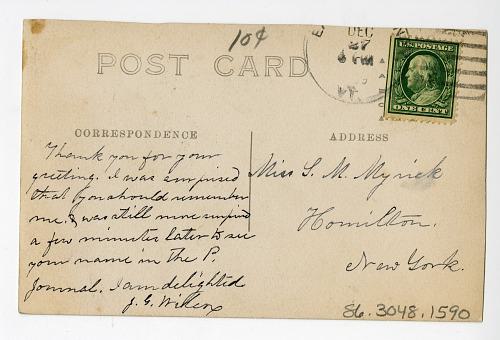 10¢
DEC
27
6 PM
VT.
U.S. POSTAGE
ONE CENT
POST CARD
CORRESPONDENCE
ADDRESS
Thank you for your
greeting. I was surprised
that you should remember
me. & was still more surprised
a few minutes later to see
your name in the P.
Journal. I am delighted
J. G. Wilcox
Miss S. M. Myrick
Hamilton.
New York.
86.3048.1590